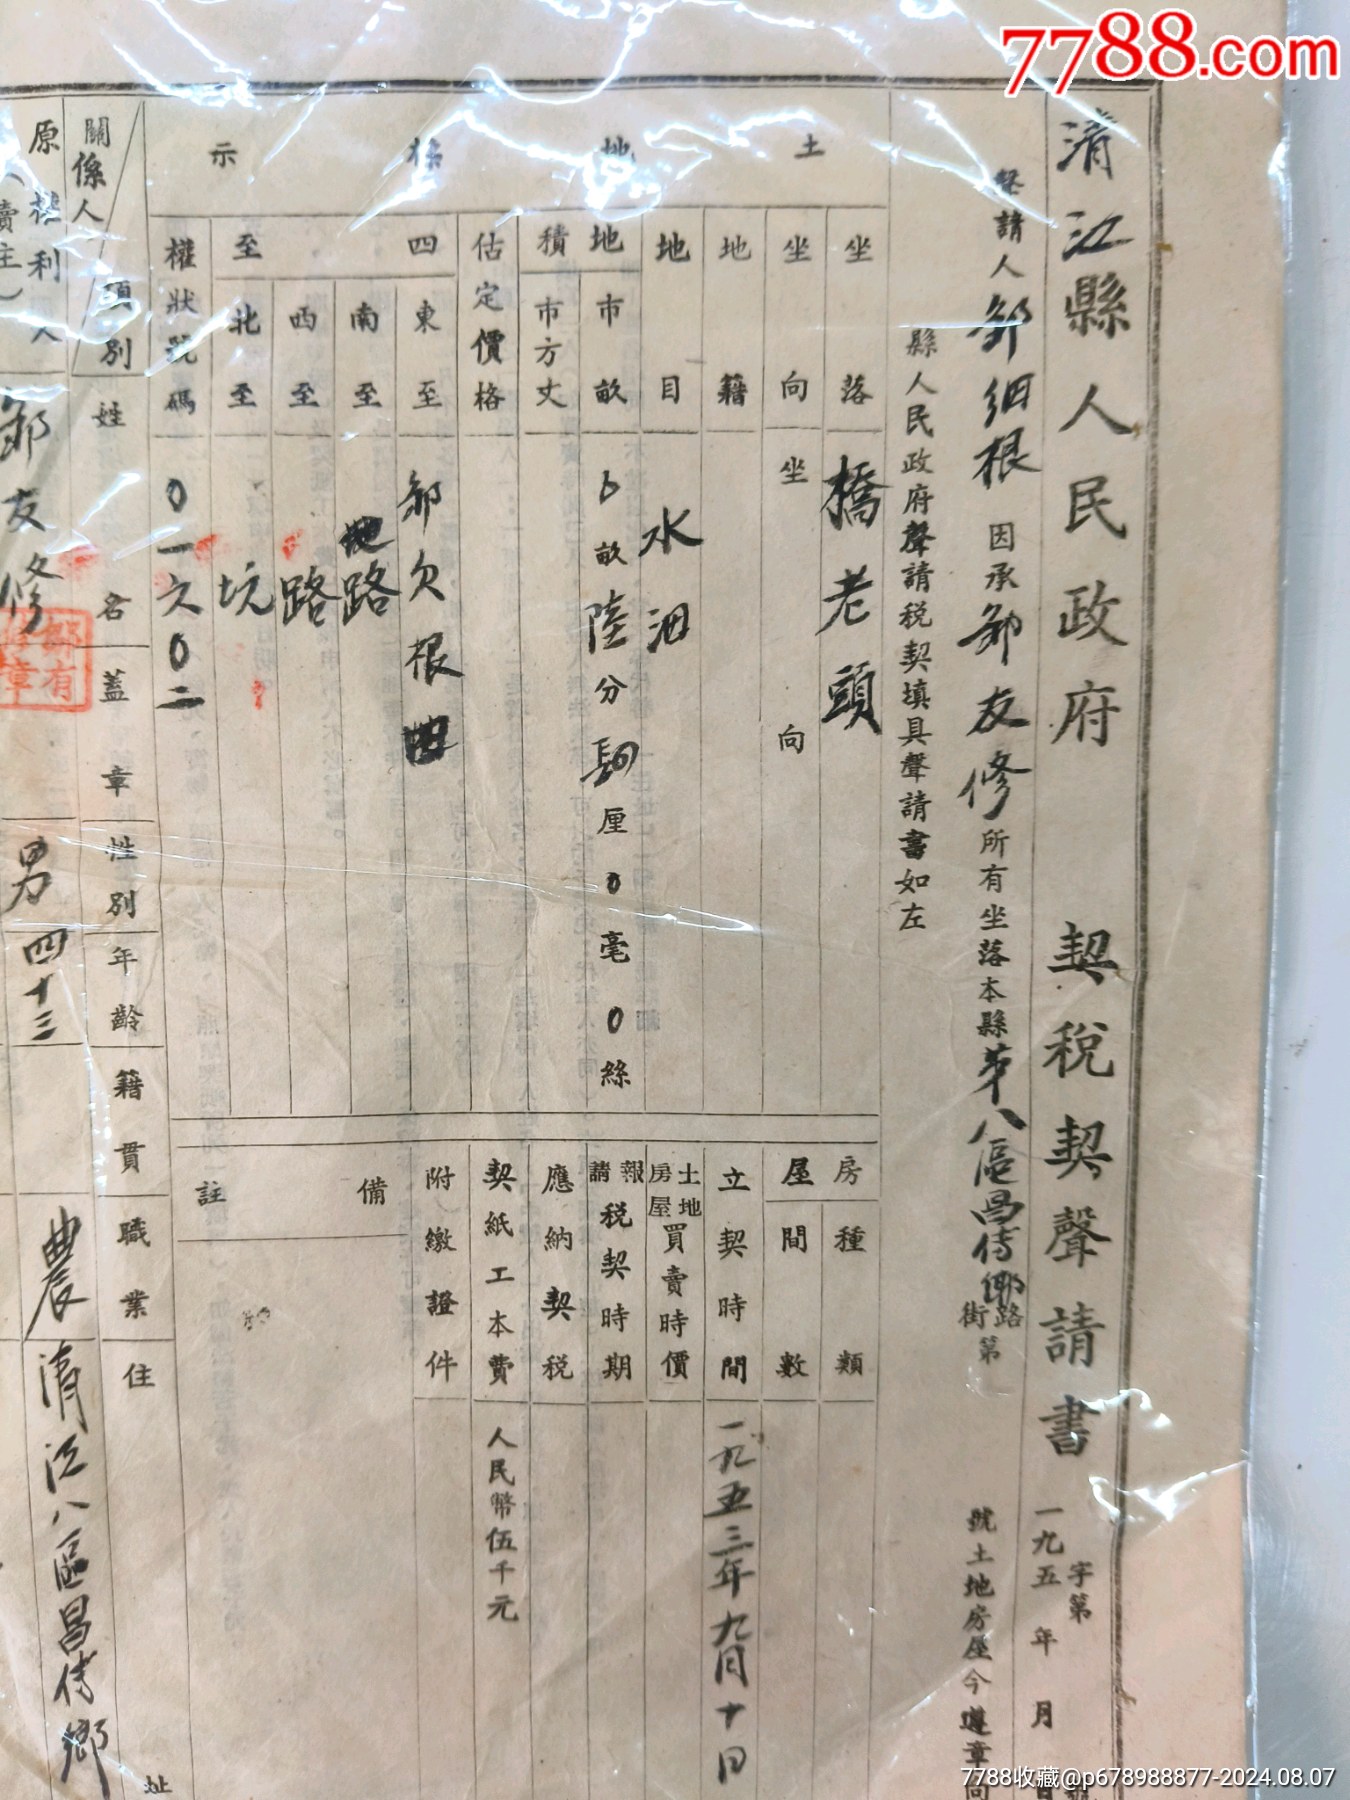 7788.com
清江縣人民政府 契稅契聲請書
字第
一九五 年 月
聲請人鄒細根因承鄒友修所有坐落本縣第八區昌傅鄉路街第 號土地房屋今遵章向
縣人民政府聲請稅契填具聲請書如左
土地標示
坐落 橋老頭
坐向 坐 向
地籍
地目 水田
地積 市畝 6畝陸分 厘0毫0絲
市方丈
估定價格
四至
東至 鄒欠根田
南至 路
西至 路
北至 坑
權狀號碼 0一六0二
房屋
種類
間數
立契時間 一九五三年九月十日
土地房屋買賣時價
報請稅契時期
應納契稅
契紙工本費 人民幣伍千元
附繳證件
備註
關係人 項別 姓名 蓋章 性別 年齡 籍貫 職業 住址
原權利人(賣主) 鄒友修 男 四十三 農 清江八區昌傅鄉
7788收藏@p678988877-2024.08.07